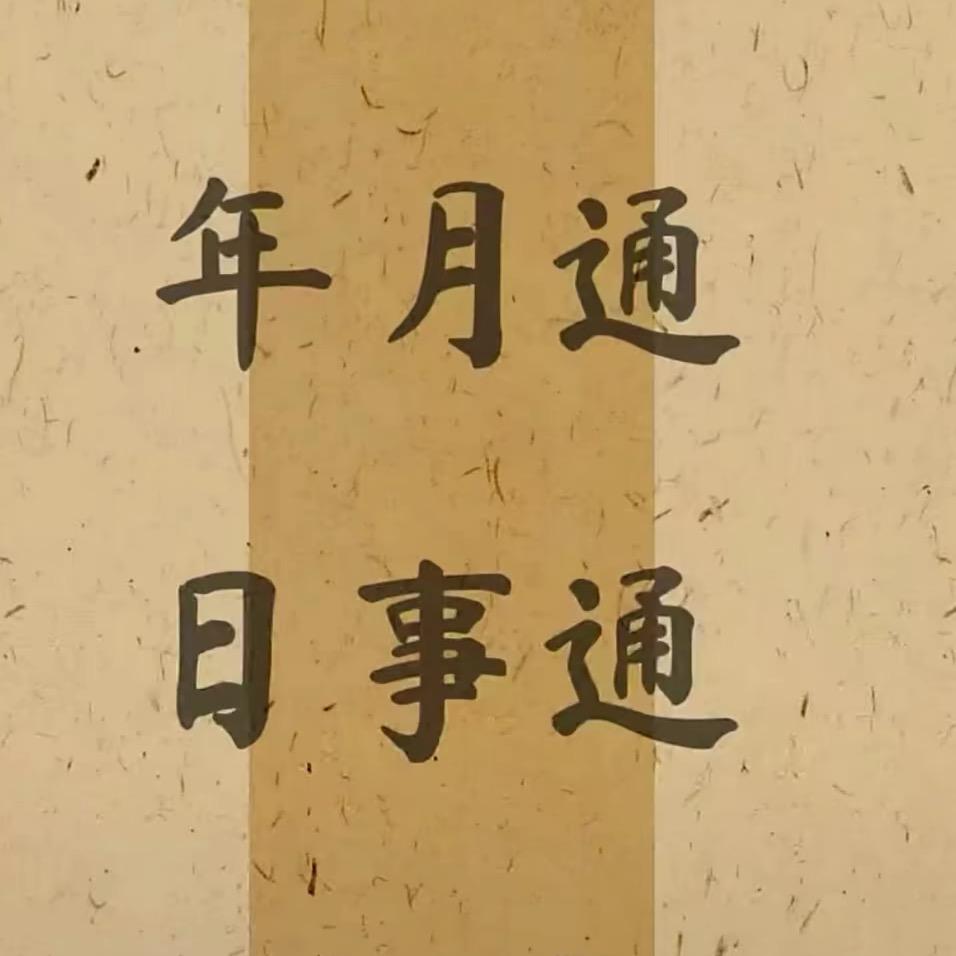 年月通
日事通